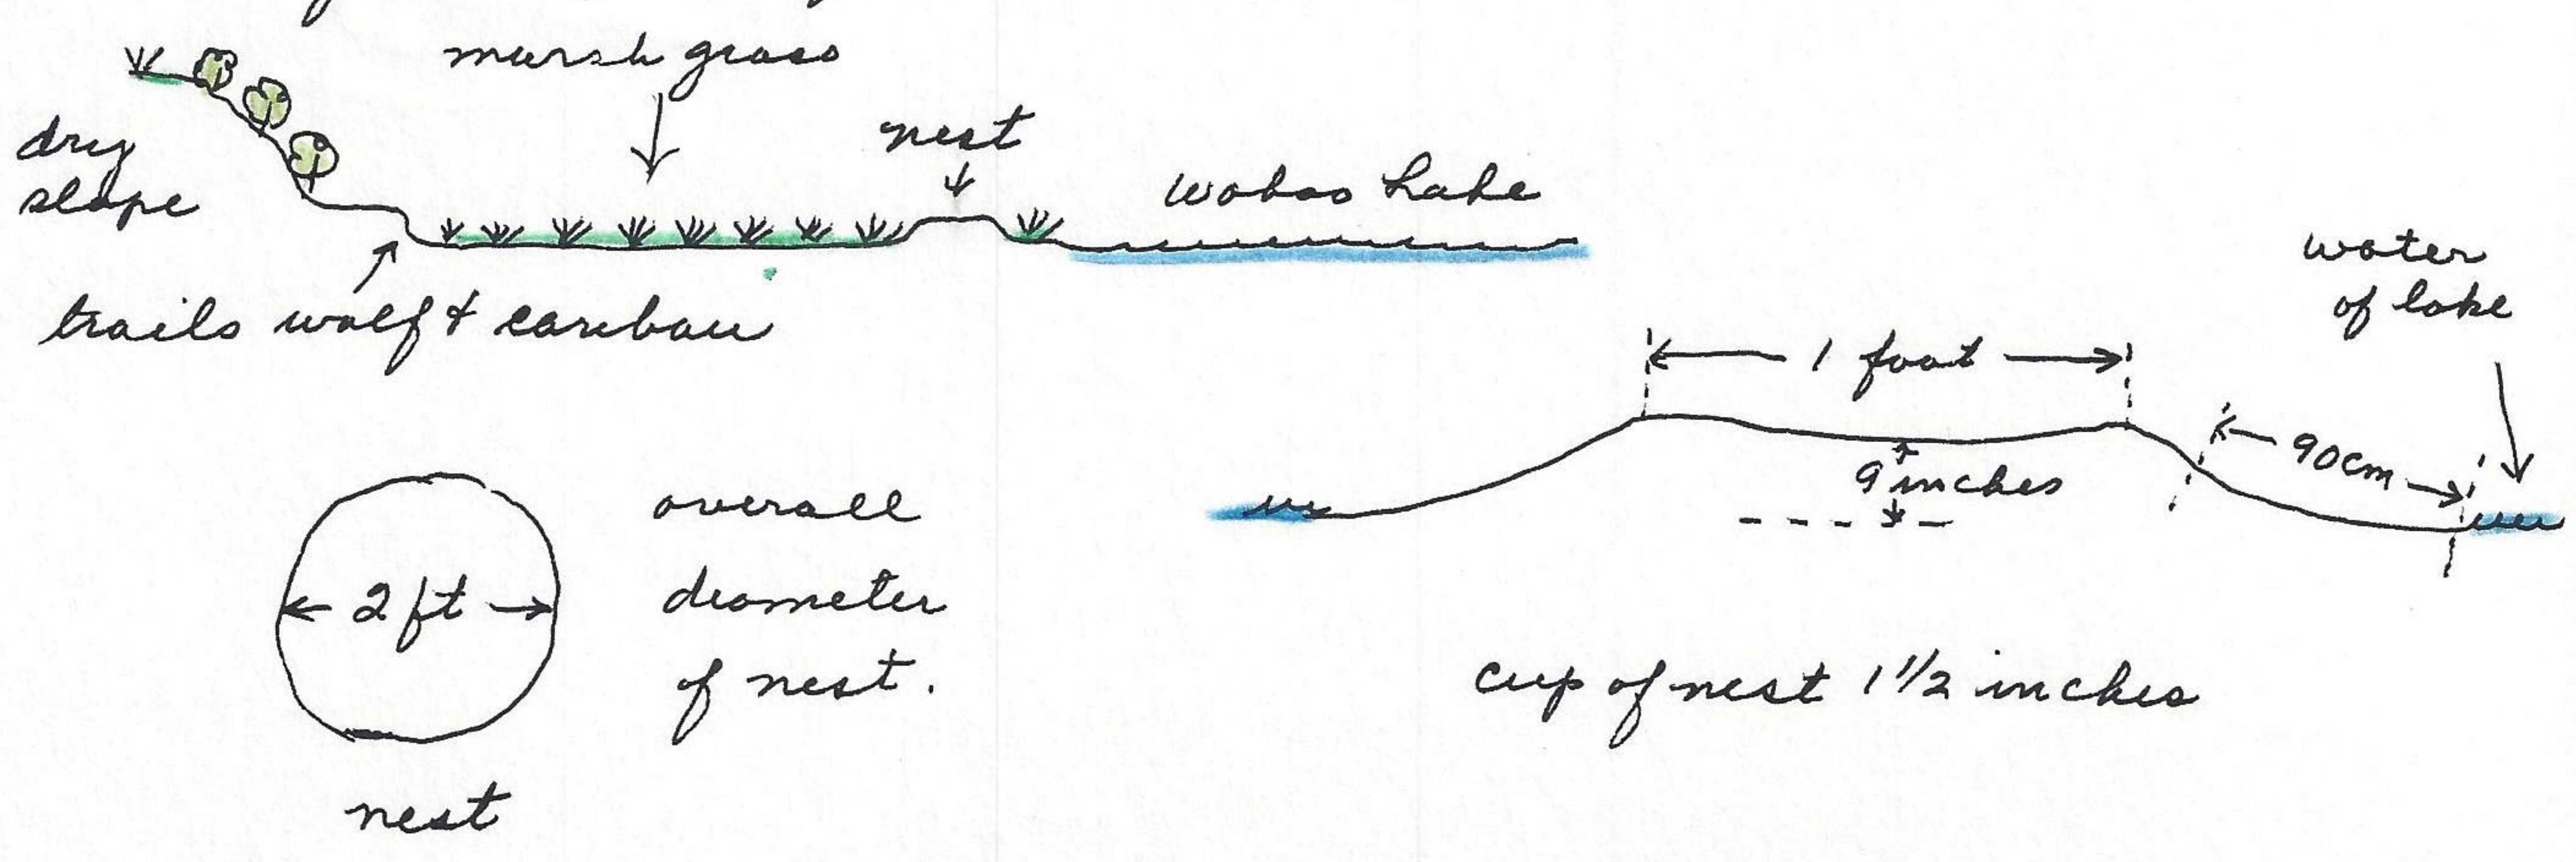 marsh grass
dry
slope
nest
Wobas Lake
trails wolf & caribou
water
of lake
1 foot
9 inches
90cm
2 ft
overall
diameter
of nest.
nest
cup of nest 1 1/2 inches